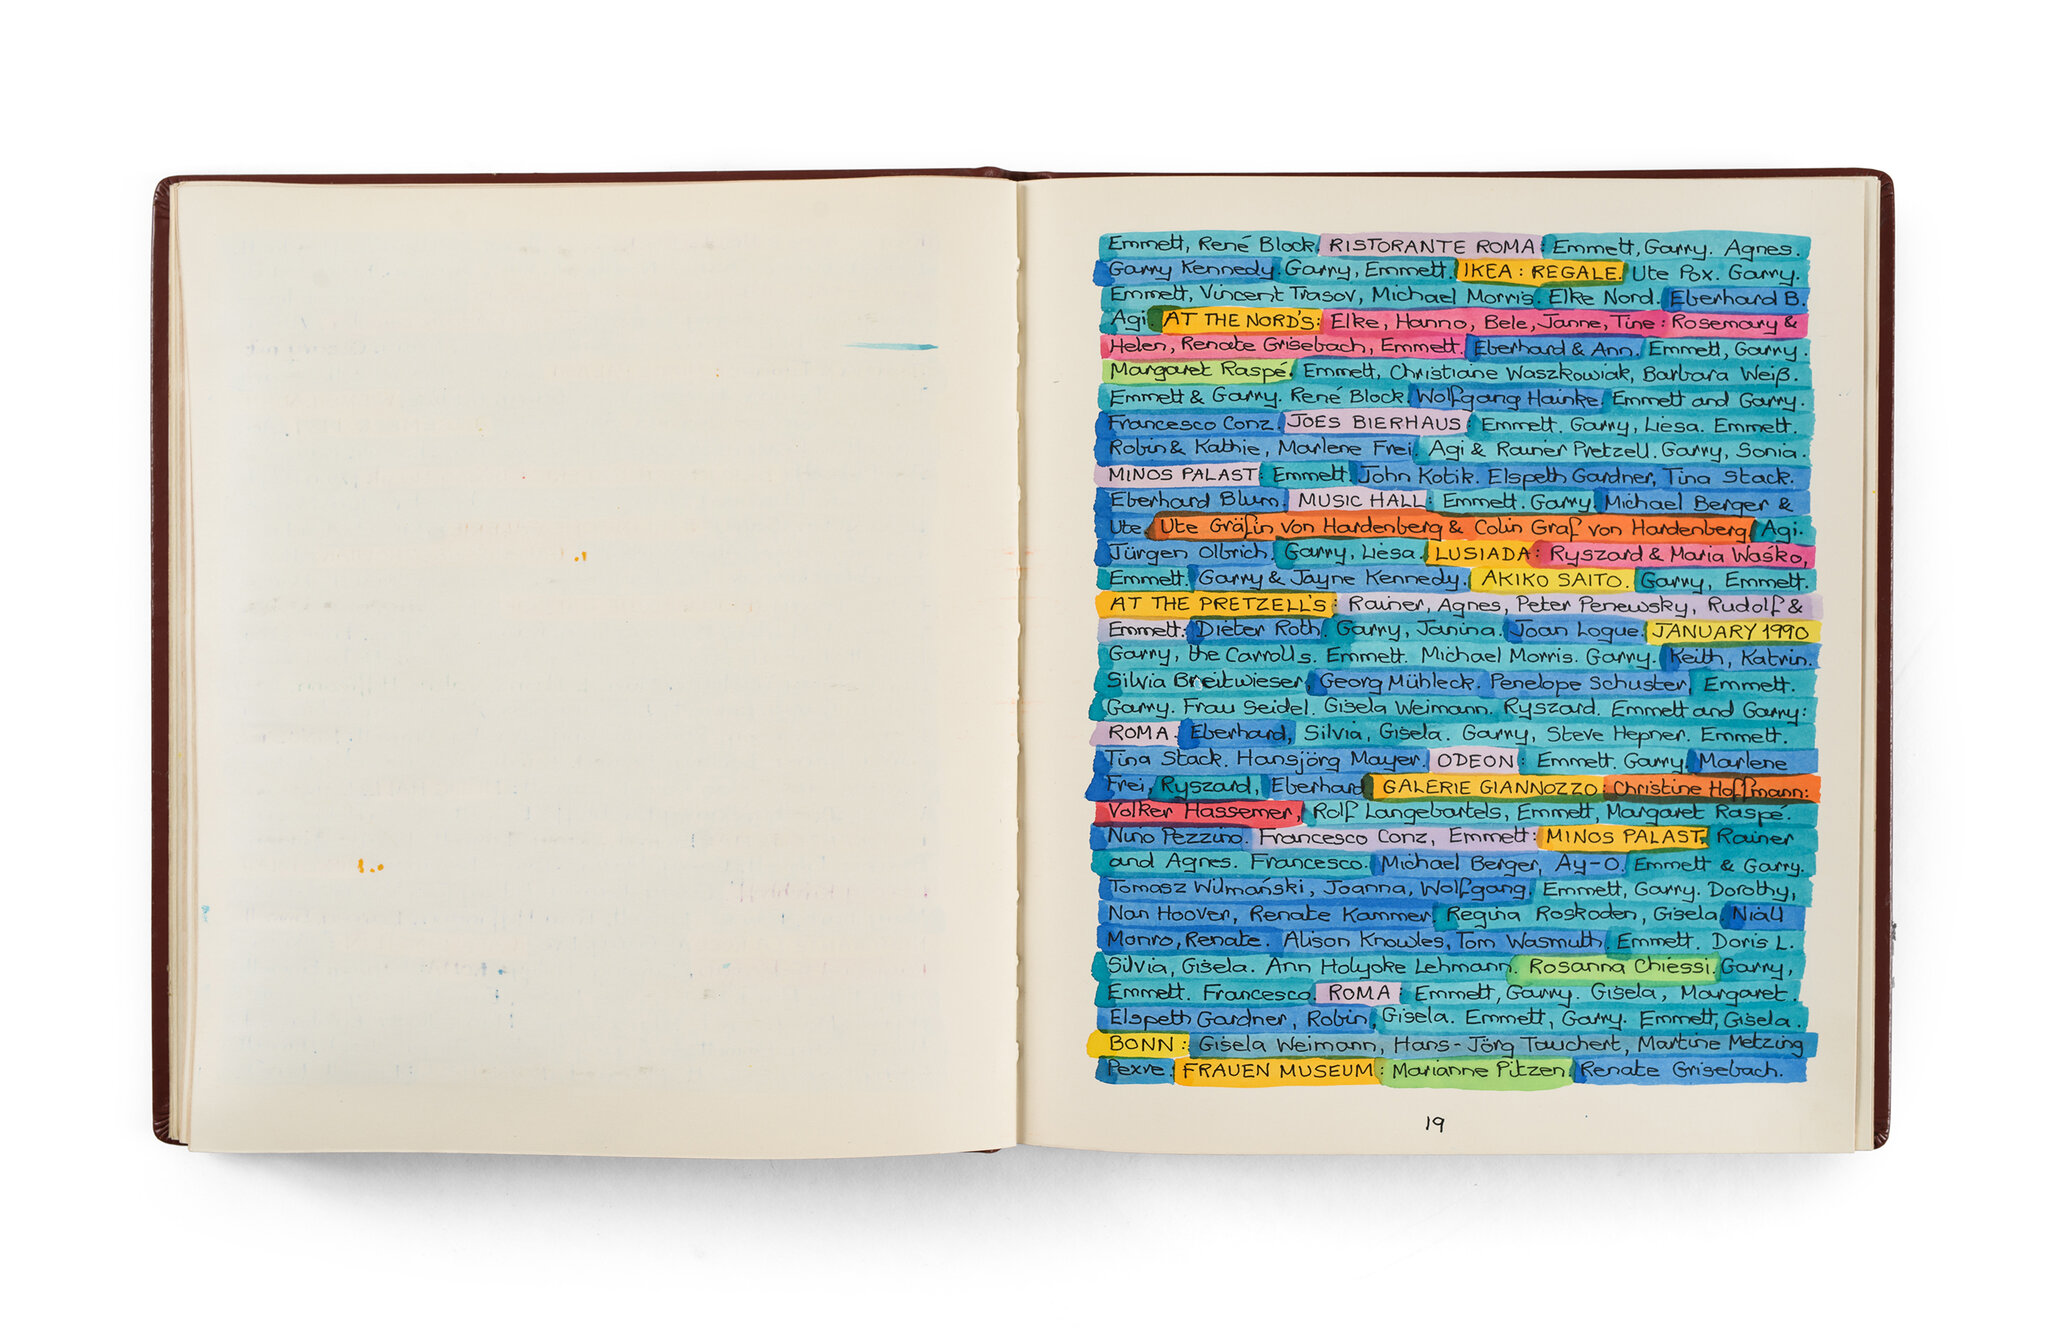 Emmett, René Block. RISTORANTE ROMA: Emmett, Garry. Agnes.
Garry Kennedy. Garry, Emmett. IKEA: REGALE. Ute Pox. Garry.
Emmett, Vincent Trasov, Michael Morris. Elke Nord. Eberhard B.
Agi. AT THE NORD'S: Elke, Hanno, Bele, Janne, Tine: Rosemary &
Helen, Renate Grisebach, Emmett. Eberhard & Ann. Emmett, Garry.
Margaret Raspé. Emmett, Christiane Waszkowiak, Barbara Weiß.
Emmett & Garry. René Block. Wolfgang Hainke. Emmett and Garry.
Francesco Conz. JOES BIERHAUS: Emmett. Garry, Liesa. Emmett.
Robin & Kathie, Marlene Frei. Agi & Rainer Pretzell. Garry, Sonia.
MINOS PALAST: Emmett. John Kotik. Elspeth Gardner, Tina Stack.
Eberhard Blum. MUSIC HALL: Emmett. Garry. Michael Berger &
Ute. Ute Gräfin von Hardenberg & Colin Graf von Hardenberg. Agi.
Jürgen Olbrich. Garry, Liesa. LUSIADA: Ryszard & Maria Waśko,
Emmett. Garry & Jayne Kennedy. AKIKO SAITO. Garry, Emmett.
AT THE PRETZELL'S: Rainer, Agnes, Peter Penewsky, Rudolf &
Emmett. Dieter Roth. Garry, Janina. Joan Logue. JANUARY 1990
Garry, the Carrolls. Emmett. Michael Morris. Garry. Keith, Katrin.
Silvia Breitwieser. Georg Mühleck. Penelope Schuster. Emmett.
Garry. Frau Seidel. Gisela Weimann. Ryszard. Emmett and Garry:
ROMA. Eberhard, Silvia, Gisela. Garry, Steve Hepner. Emmett.
Tina Stack. Hansjörg Mayer. ODEON: Emmett. Garry. Marlene
Frei, Ryszard, Eberhard. GALERIE GIANNOZZO: Christine Hoffmann:
Volker Hassemer, Rolf Langebartels, Emmett, Margaret Raspé.
Nino Pezzino. Francesco Conz, Emmett: MINOS PALAST. Rainer
and Agnes. Francesco. Michael Berger, Ay-O. Emmett & Garry.
Tomasz Wilmański, Joanna, Wolfgang. Emmett, Garry. Dorothy,
Nan Hoover, Renate Kammer. Regina Roskoden, Gisela. Niall
Monro, Renate. Alison Knowles, Tom Wasmuth. Emmett. Doris L.
Silvia, Gisela. Ann Holyoke Lehmann. Rosanna Chiessi. Garry,
Emmett. Francesco. ROMA: Emmett, Garry. Gisela, Margaret.
Elspeth Gardner, Robin, Gisela. Emmett, Garry. Emmett, Gisela.
BONN: Gisela Weimann, Hans-Jörg Tauchert, Martine Metzing
Pexre. FRAUEN MUSEUM: Marianne Pitzen. Renate Grisebach.
19